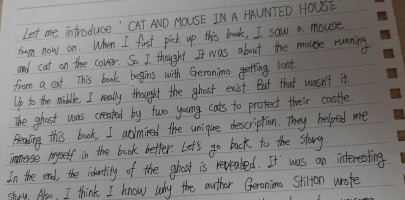 Let me introduce 'CAT AND MOUSE IN A HAUNTED HOUSE'
from now on. When I first pick up this book, I saw a mouse
and cat on the cover. So I thought It was about the mouse running
from a cat. This book begins with Geronimo getting lost.
Up to the middle, I really thought the ghost exist. But that wasn't it.
The ghost was created by two young cats to protect their castle.
Reading this book, I admired the unique description. They helped me
immerse myself in the book better. Let's go back to the story.
In the end, the identity of the ghost is revealed. It was an interesting
story. Also, I think I know why the author Geronimo Stilton wrote